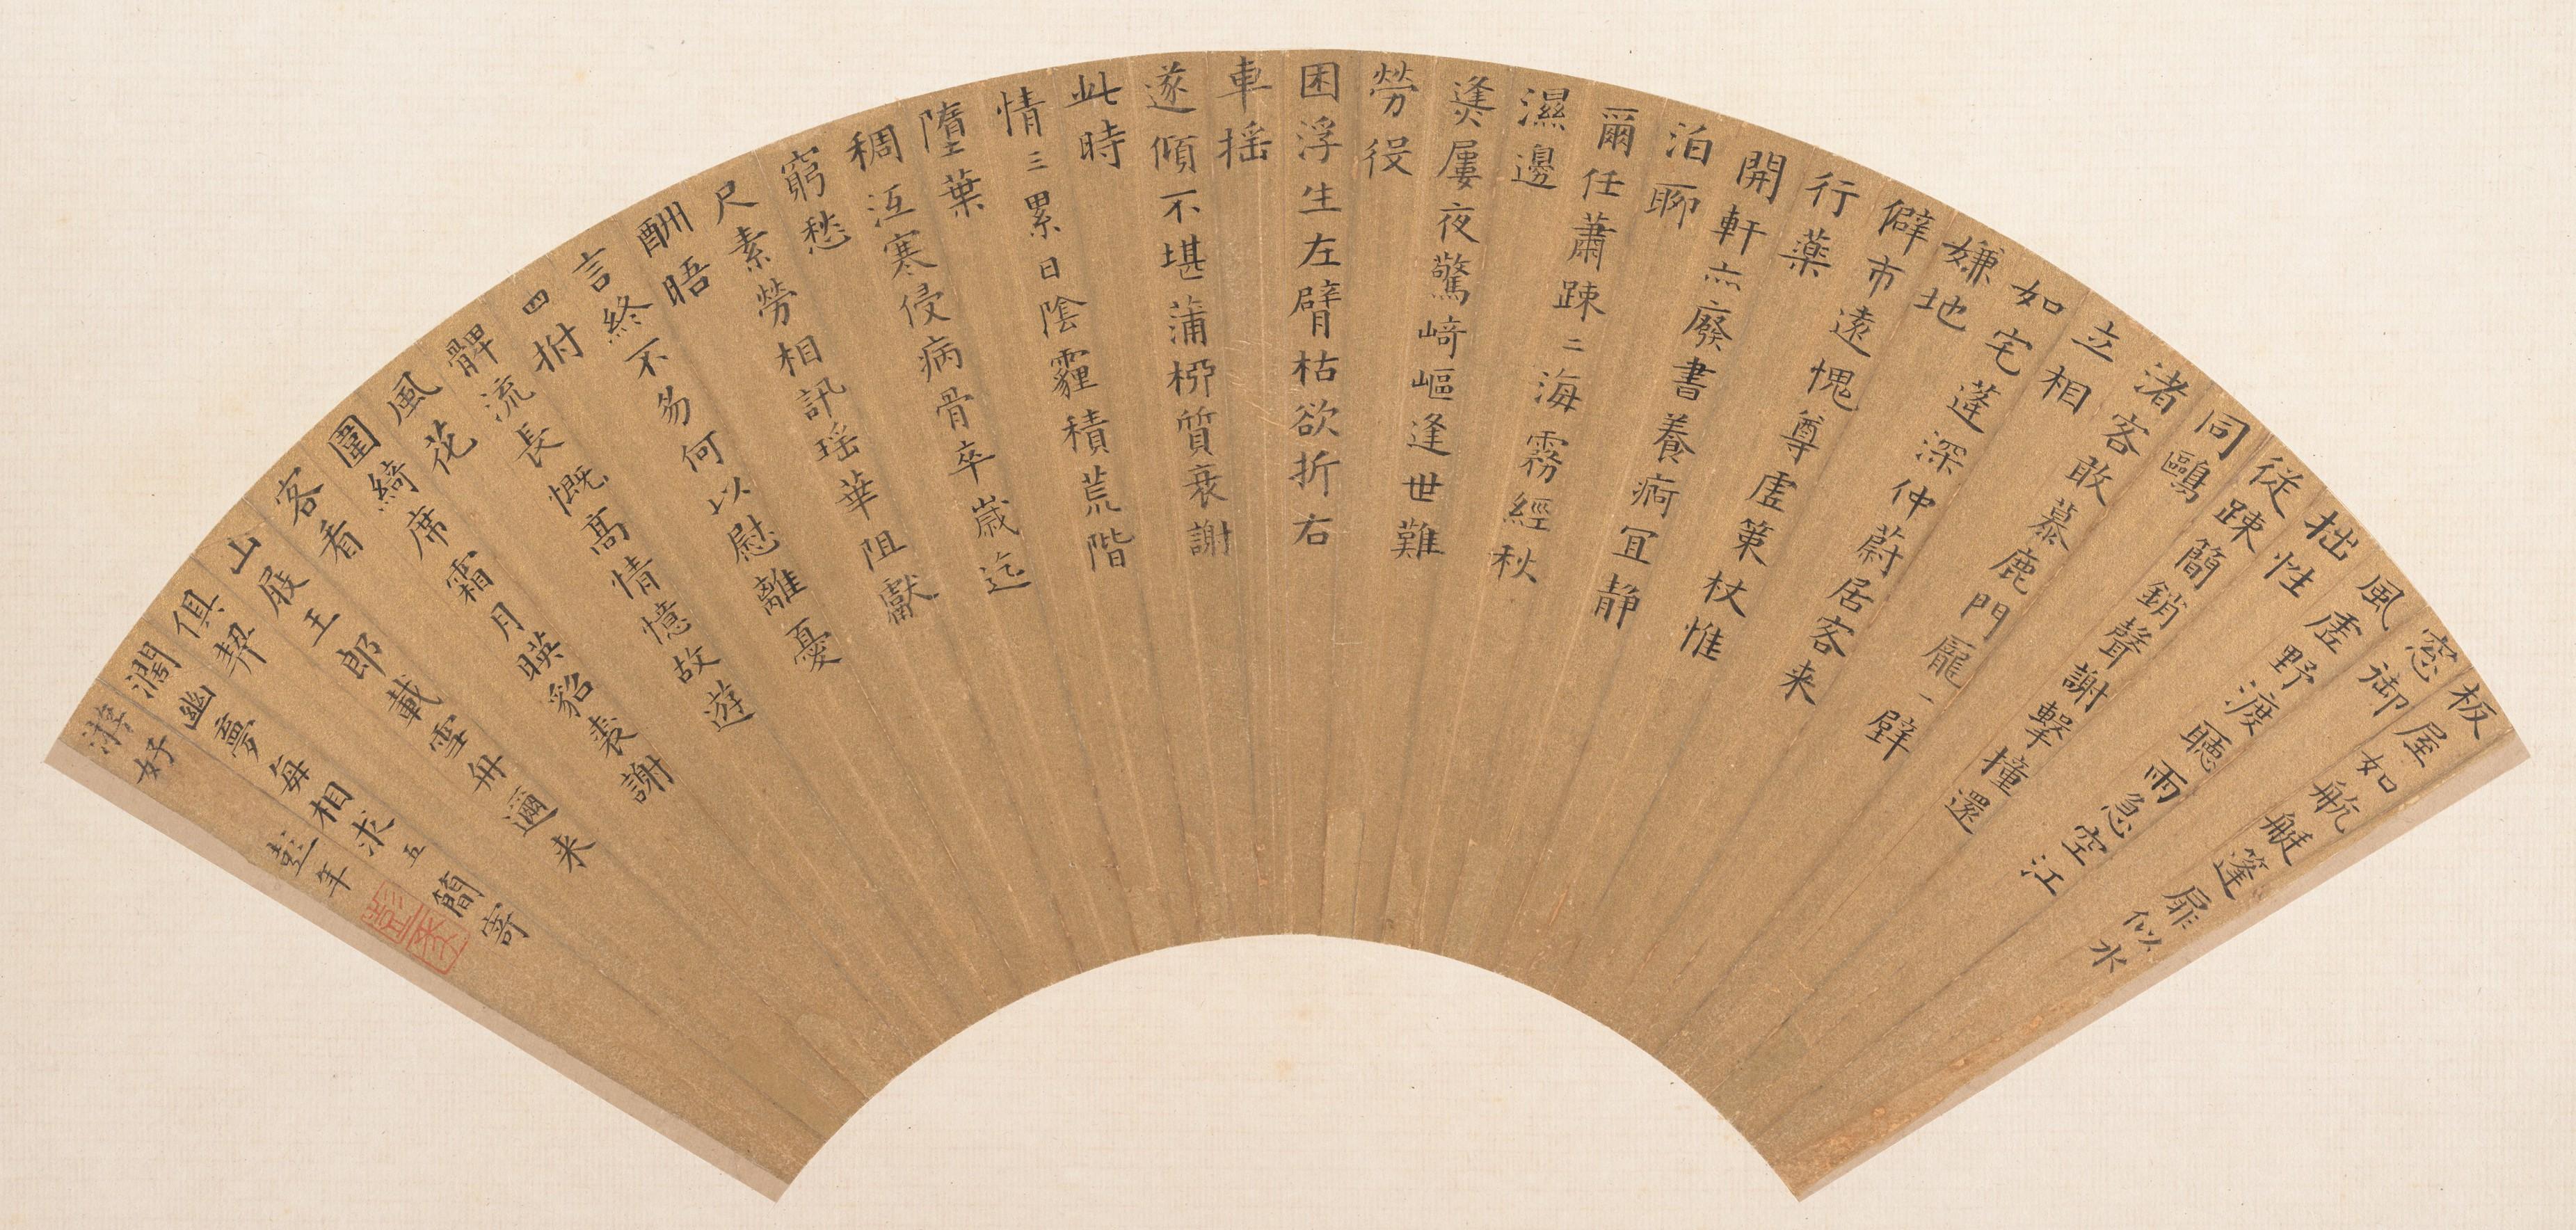 板屋如航艇篷扉似水
窓御
風虚野渡聽雨急空江
拙性
從踈簡銷聲謝撃撞還
同鷗
渚客敢慕鹿門龐一壁
立相
如宅蓬深仲蔚居客来
嫌地
僻市遠愧尊虚策杖惟
行薬
開軒亦廢書養痾宜静
泊聊
爾任蕭踈二海霧經秋
濕邊
熢屢夜驚崎嶇逢世難
勞役
困浮生左臂枯欲折右
車揺
遂傾不堪蒲栁質衰謝
此時
情三累日陰霾積荒階
墮葉
稠沍寒侵病骨卒歳迄
窮愁
尺素勞相訊瑶華阻獻
酬晤
言終不易何以慰離憂
四拊
髀流長慨高情憶故遊
風花
圍綺席霜月暎貂裘謝
客看
山屐王郎載雪舟邇来
俱契
濶幽夢每相求五簡寄
游好
彭年